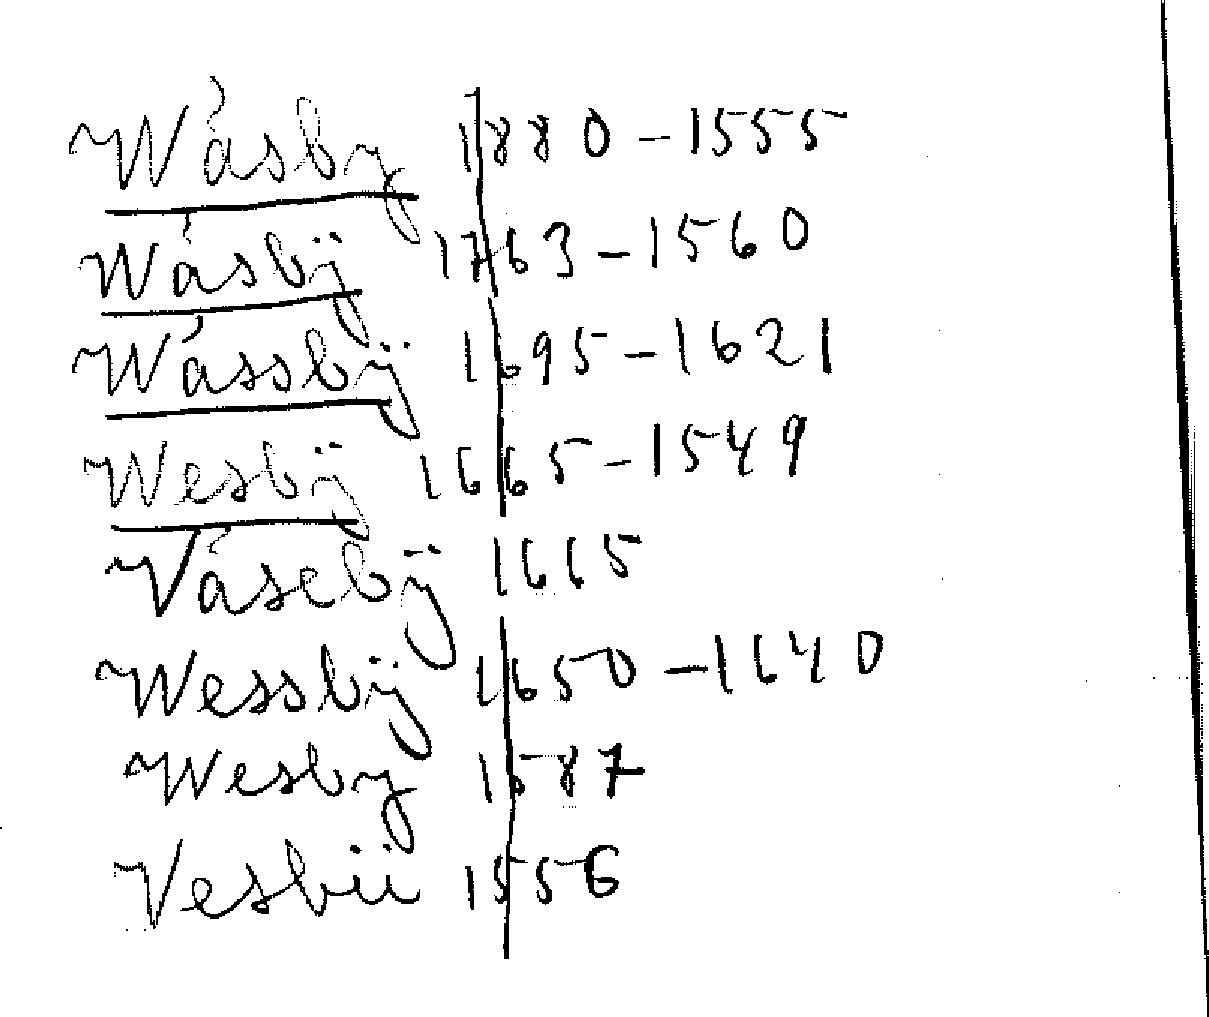 Wåsby 1880-1555
Wåsbÿ 1763-1560
Wåssbÿ 1695-1621
Wesbÿ 1665-1549
Våsebÿ 1665
Wessbÿ 1650-1640
Wesby 1587
Vesbii 1556